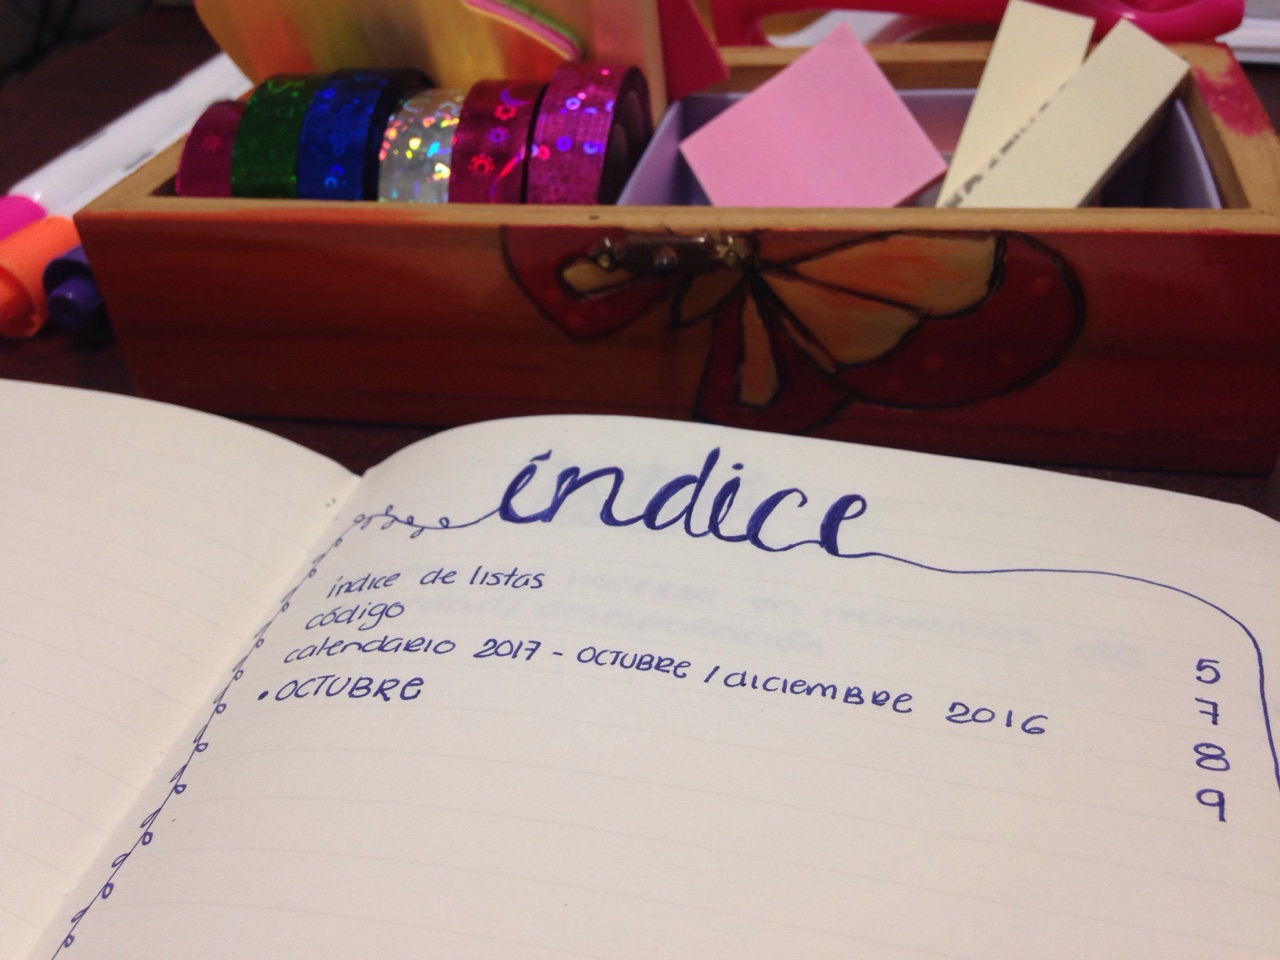 índice
índice de listas 5
código 7
calendario 2017 - OCTUBRE / diciembre 2016 8
• OCTUBRE 9